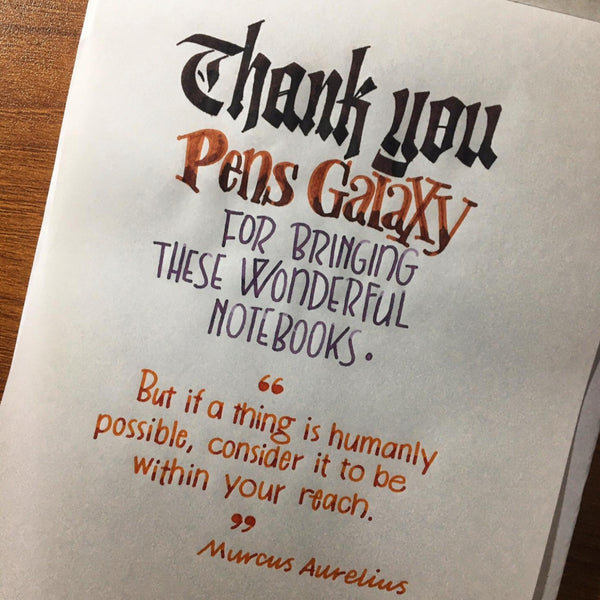 Thank you
Pens Galaxy
FOR BRINGING
THESE WONDERFUL
NOTEBOOKS.
“
But if a thing is humanly
possible, consider it to be
within your reach.
”
Murcus Aurelius